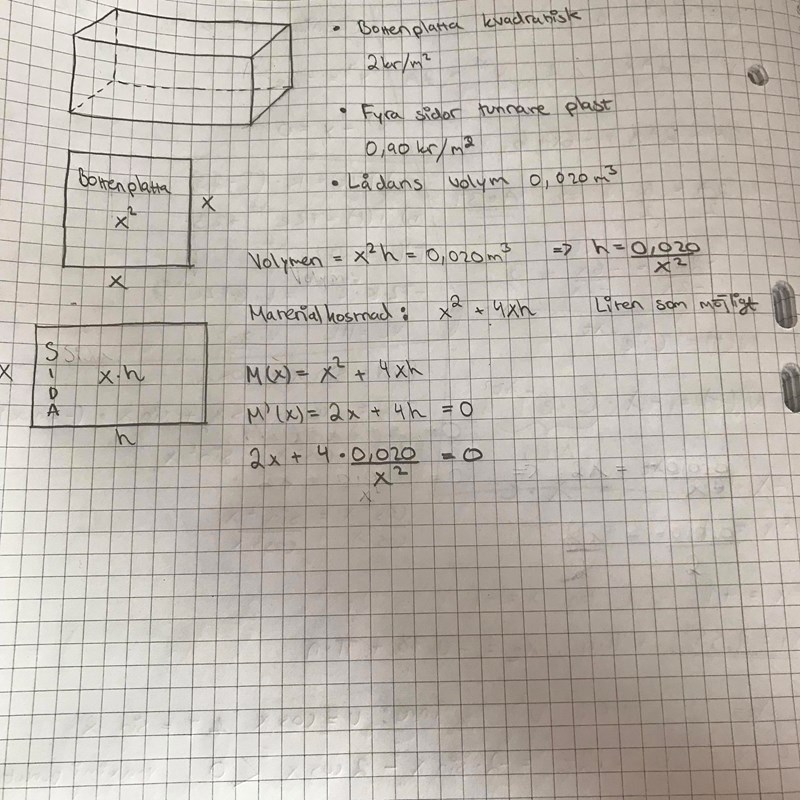 • Bottenplatta kvadratisk
2kr/m²
• Fyra sidor tunnare plast
0,90 kr/m²
• Lådans volym 0,020 m³
Bottenplatta
x²
x
x
Volymen = x²h = 0,020 m³ => h = 0,020/x²
Materialkostnad: x² + 4xh Liten som möjligt
SIDA
x·h
x
h
M(x) = x² + 4xh
M'(x) = 2x + 4h = 0
2x + 4 · 0,020/x² = 0